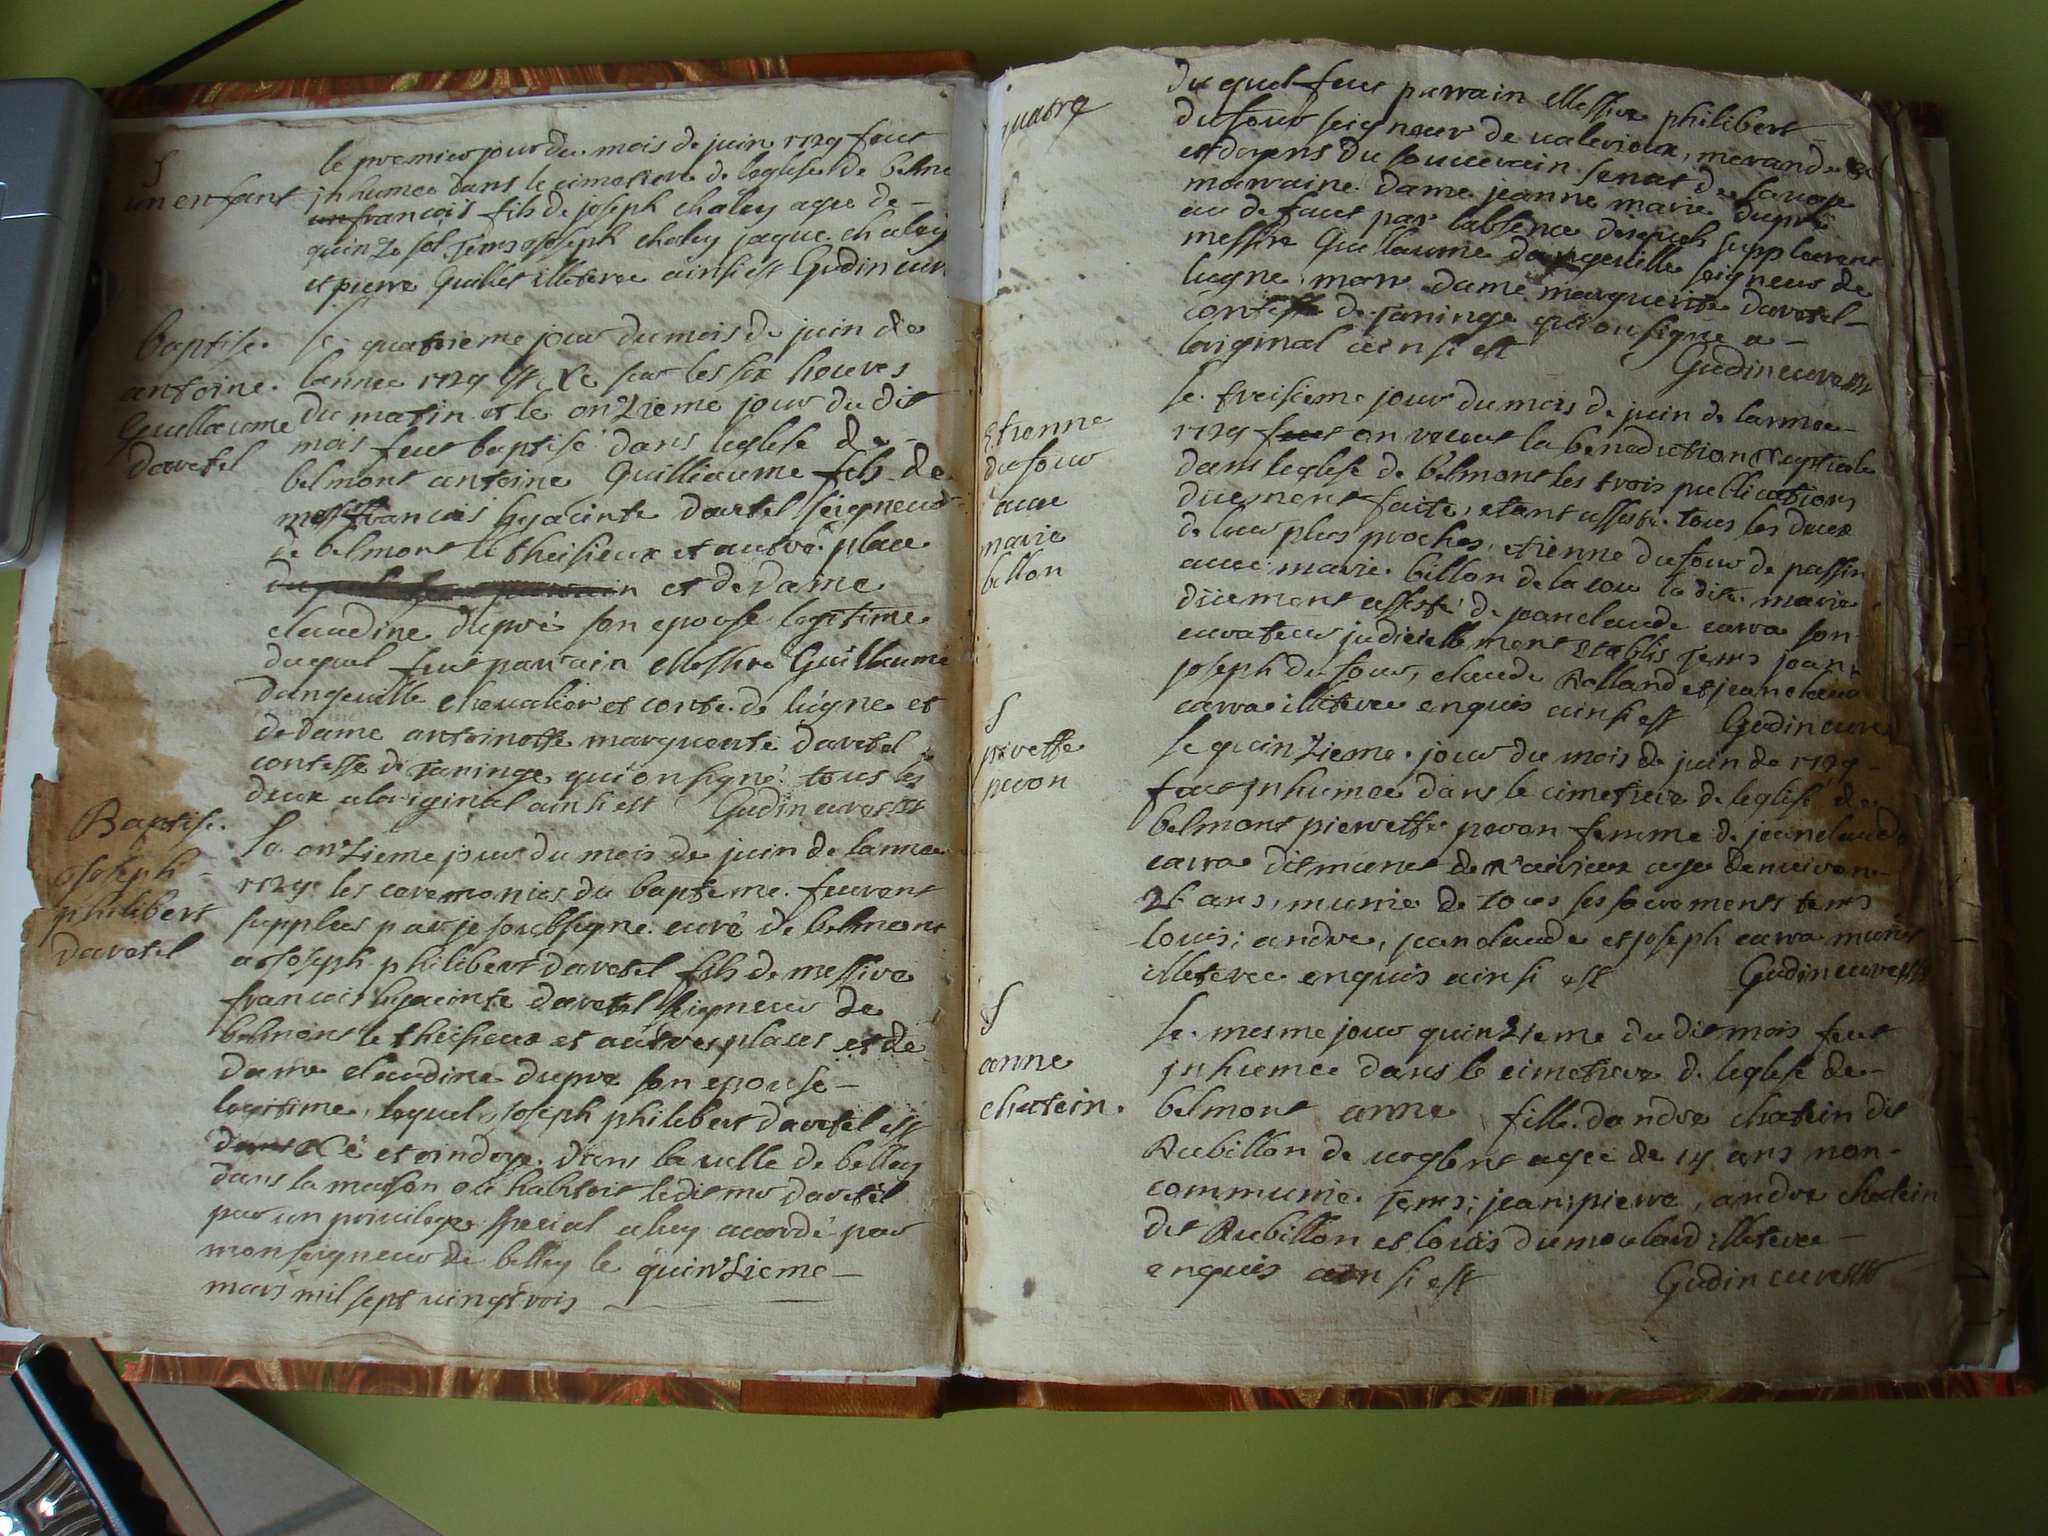 S
un enfant
le premier jour du mois de juin 1729 feut
inhumee dans le cimetiere de leglise de belmo
francois fils de joseph chaley agee de
quinze tems joseph chaley jaque chaley
et pierre Guillet illeteree ainsi est Gudin cure
Baptise
antoine
Guillaume
davetel
le quatrieme jour du mois de juin de
lannee 1729 est né sur les six heures
du matin et le onzieme jour du dit
mois feut baptisé dans leglise de
belmont antoine Guilliaume fils de
francois hyacinte davetel seigneur
de belmont le theisieux et autre place
et de dame
claudine dupré son epouse legitime
duquel feut parrain Messire Guillaume
dangeville chevalier et conte de lugne et
de dame antoinette marguerite davetel
contesse de Taninge qui on signé tous les
deux a loriginal ainsi est Gudin cure
Baptise
joseph
philibert
davetel
le onzieme jour du mois de juin de lannee
1729 les ceremonies du bapteme feurent
supplees par je soubsigne curé de belmont
a joseph philibert davetel fils de messire
francois hyacinte davetel seigneur de
belmont le theisieux et autres places et de
dame claudine dupre son epouse
legitime lequel joseph philibert davetel est
né et ondoye dans la ville de belley
dans la maison ou habitoit ledit mr davetel
par un privilege special a luy acordé par
monseigneur de belley le quinzieme
mars mil sept vingt trois
quatre
du quel feut parrain Messire philibert
dufour seigneur de valerieux, merande
et doyens du souverain senat de savoye
marraine dame jeanne marie dupré
au defaut par labsence desquels suppleerent
messire Guillaume dangeville seigneur de
lugne, dame marguerite davetel
contesse de taninge qui on signe a
loriginal ainsi est Gudin cure
Etienne
dufour
avec
marie
billon
le treisieme jour du mois de juin de lannee
1729 on receut la benediction nuptiale
dans leglise de belmont les trois publications
duement faite, etant assisté tous les deux
de leur plus proches, etienne dufour de passin
avec marie billon de la cou la dite marie
düement assisté de jean claude carra son
curateur judiciellement etablis tems jean
joseph dufour, claude Rolland et jean claude
carra illeteree enquis ainsi est Gudin cure
S
pierette
pevon
le quinzieme jour du mois de juin de 1729
feut inhumee dans le cimetiere de leglise de
belmont pierette pevon femme de jean claude
carra dit munet de agee denviron
26 ans, munie de tous ses sacrements tems
louis, andre, jean claude et joseph carra munet
illeteree enquis ainsi est Gudin cure
S
anne
chatein
le mesme jour quinzieme du dit mois feut
inhumee dans le cimetiere de leglise de
belmont anne fille dandre chatein dit
Rubillon de agee de 14 ans non
communie tems; jean pierre, andre chatein
dit Rubillon et louis dumolard illeteree
enquis ainsi est Gudin cure